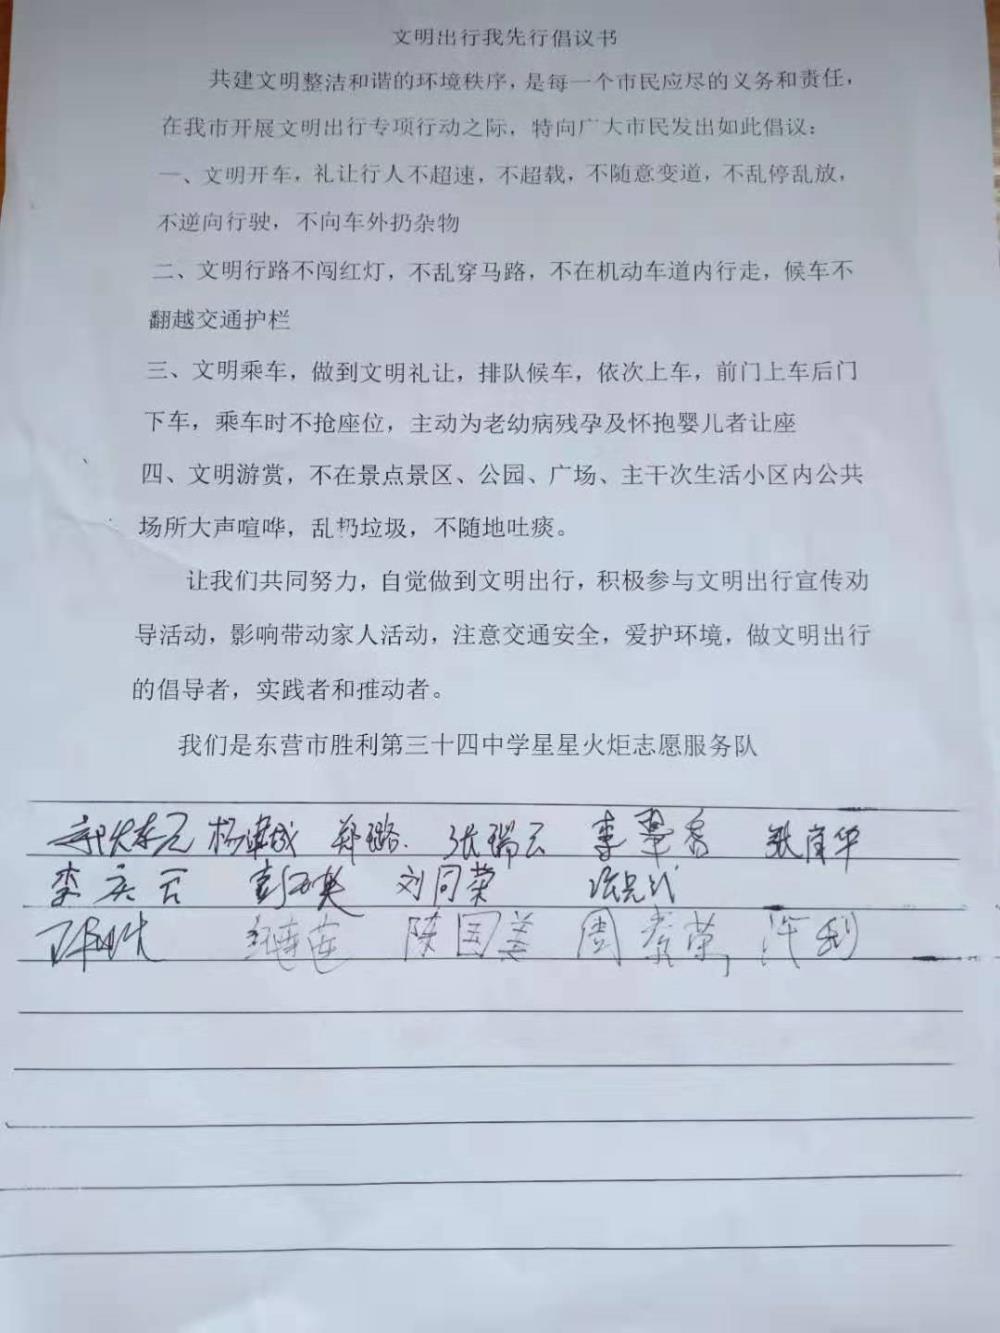 文明出行我先行倡议书
共建文明整洁和谐的环境秩序，是每一个市民应尽的义务和责任，
在我市开展文明出行专项行动之际，特向广大市民发出如此倡议：
一、文明开车，礼让行人不超速，不超载，不随意变道，不乱停乱放，
不逆向行驶，不向车外扔杂物
二、文明行路不闯红灯，不乱穿马路，不在机动车道内行走，候车不
翻越交通护栏
三、文明乘车，做到文明礼让，排队候车，依次上车，前门上车后门
下车，乘车时不抢座位，主动为老幼病残孕及怀抱婴儿者让座
四、文明游赏，不在景点景区、公园、广场、主干次生活小区内公共
场所大声喧哗，乱扔垃圾，不随地吐痰。
让我们共同努力，自觉做到文明出行，积极参与文明出行宣传劝
导活动，影响带动家人活动，注意交通安全，爱护环境，做文明出行
的倡导者，实践者和推动者。
我们是东营市胜利第三十四中学星星火炬志愿服务队
郑璐 张瑞云 李翠香
刘同荣
陈国美 周秀荣 许利